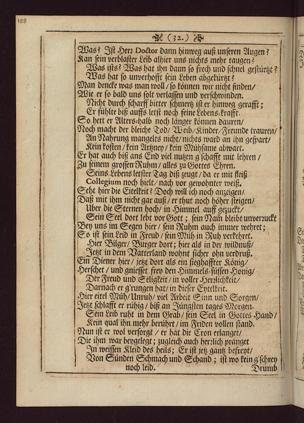 (32.)
Was? Ist Herr Doctor dann hinweg auß unseren Augen?
Kan sein verblaster Leib alhier uns nichts mehr taugen?
Was ists? Was hat ihn dann so frech und schnel gestürtzt?
Was hat so unverhofft sein Leben abgekürtzt?
Man dencke was man woll / so können wir nicht finden /
Wie er so bald uns solt verlassen und verschwinden.
Nicht durch scharff bitter schmertz ist er hinweg gerafft;
Er fühlte biß auffs letst noch seine Lebens-Krafft.
So hett er Alters-halb noch länger können dauren /
Noch macht der bleiche Tod / Weib / Kinder / Freunde trauren /
An Nahrung mangelts nicht / nichts ward an ihn gespart /
Kein kosten / kein Artzney / kein Mühsame alwart.
Er hat auch biß ans End viel nutzen gschafft mit lehren /
Zu seinem grossen Ruhm / alles zu Gottes Ehren.
Seins Lebens letster Tag diß zeugt / da er mit fleiß
Collegium noch hielt / nach vor gewohnter weiß.
Seht hier die Eitelkeit! Doch will ich noch anzeigen /
Daß mit ihm nicht gar auß / er thut noch höher steigen /
Uber die Sternen hoch / in Himmel auff gezuckt /
Sein Seel dort lebt vor Gott; sein Nam bleibt unverruckt
Bey uns im Segen hier / sein Ruhm auch immer wehret;
So ist sein Leid in Freud / sein Müh in Ruh verkehret.
Hier Bilger / Burger dort; hier als in der wildnuß /
Jetzt in dem Vatterland wohnt sicher ohn verdruß.
Ein Diener hier / jetzt dort als ein sieghaffter König /
Herschet / und geniesset frey den Himmels-süssen Honig /
Der Freud und Seligkeit / in voller Herlichkeit /
Darnach er g'rungen hat / in dieser Eyeltkeit.
Hier eitel Müh / Unruh / viel Arbeit Sinn und Sorgen /
Jetzt schlafft er rühig / biß an Jüngsten tages Morgen.
Sein Leib ruht in dem Grab / sein Seel in Gottes Hand /
Kein qual ihn mehr berührt / im Frieden vollen stand.
Nun ist er wol versorgt / er hat die Cron erlanget /
Die ihm war beygelegt; zugleich auch herzlich pranget
In weissen Kleid des heils; Er ist jetz gantz befreyt /
Von Sünden Schmach und Schand; ist wo kein g'schrey
noch leid.
Drumb